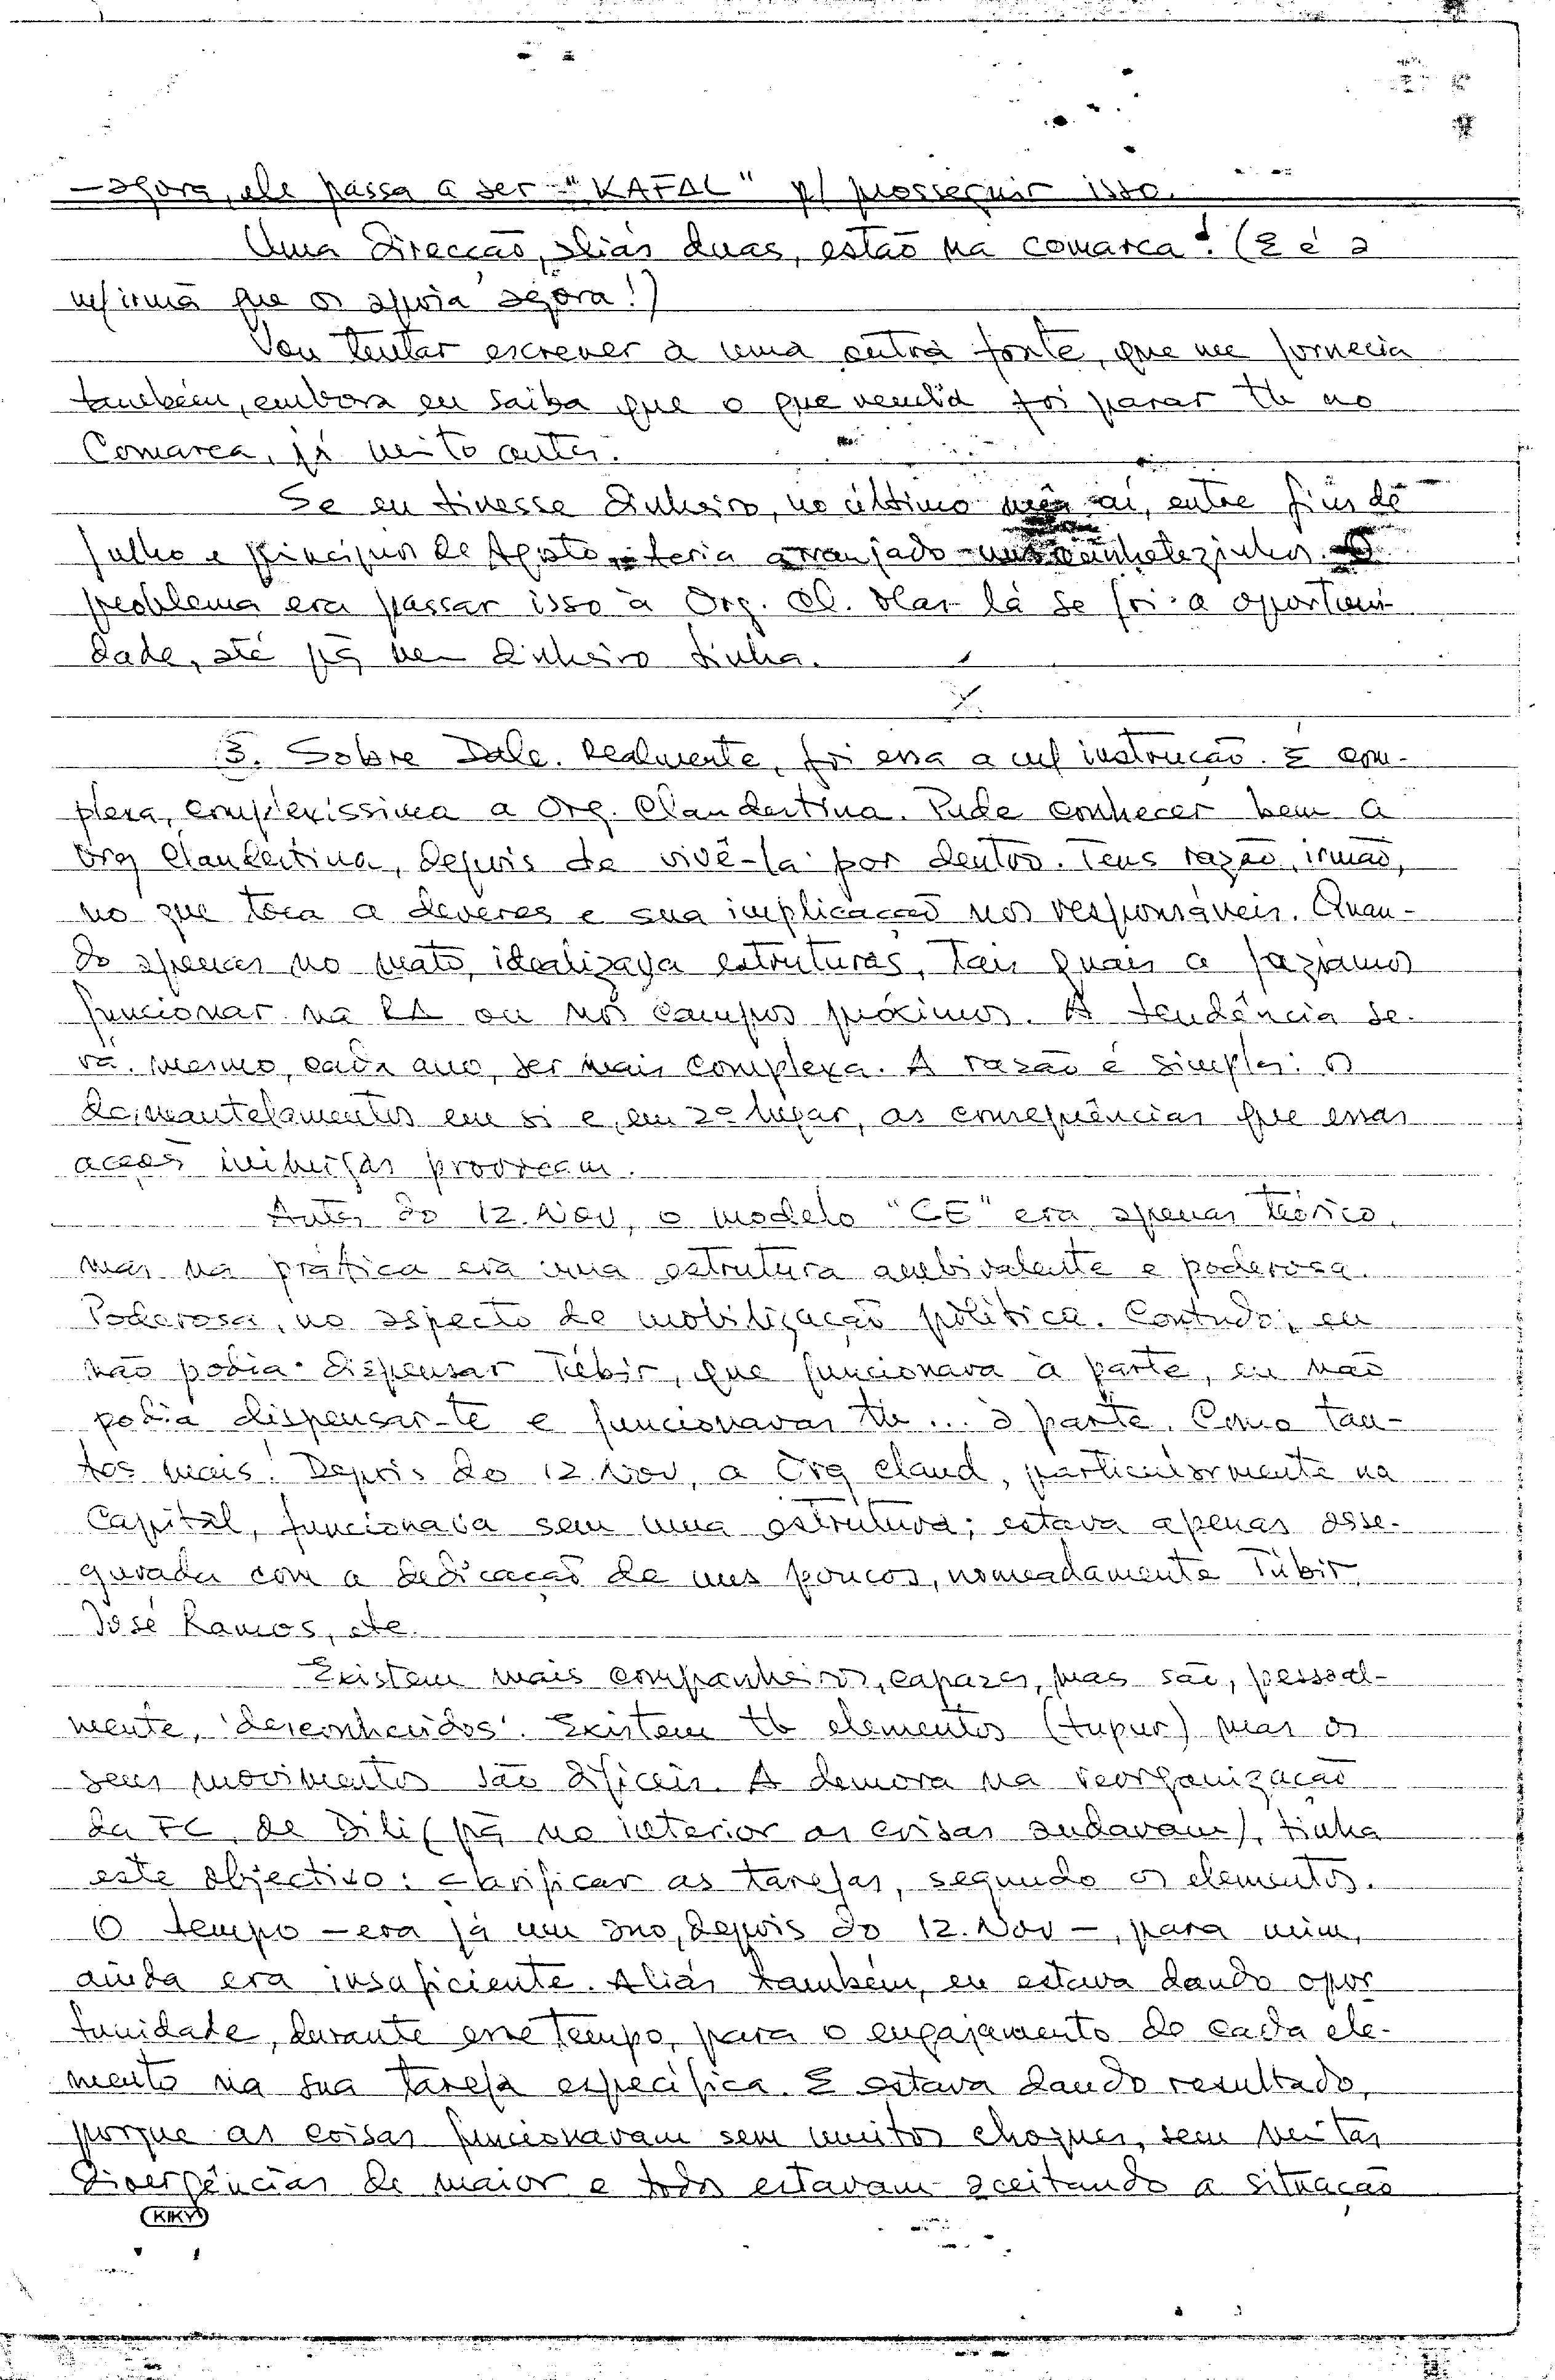 — agora, ele passa a ser "KAFAL" p/ prosseguir isso.
Uma Direcção, aliás duas, estão na comarca! (E é a
m/ irmã que os apoia agora!)
Vou tentar escrever a uma outra fonte, que me fornecia
também, embora eu saiba que o que vendia foi parar tb no
Comarca, já muito antes.
Se eu tivesse dinheiro, no último mês aí, entre fins de
Julho e princípios de Agosto, teria arranjado uns canhetezinhos. O
problema era passar isso à Org. Cl. Mas lá se foi a oportuni-
dade, até pq nem dinheiro tinha.
3. Sobre Dale. Realmente, foi essa a m/ instrução. É com-
plexa, complexíssima a Org. Clandestina. Pude conhecer bem a
Org Clandestina, depois de vivê-la por dentro. Tens razão, irmão,
no que toca a deveres e sua implicação nos responsáveis. Quan-
do apenas no mato, idealizava estruturas, tais quais a fazíamos
funcionar na RA ou nos campos próximos. A tendência se-
rá mesmo, cada ano, ser mais complexa. A razão é simples: os
desmantelamentos em si e, em 2º lugar, as consequências que essas
acções inimigas provocam.
Antes do 12. Nov, o modelo "CE" era apenas teórico,
mas na prática era uma estrutura ambivalente e poderosa.
Poderosa, no aspecto de mobilização política. Contudo, eu
não podia dispensar Tubir, que funcionava à parte, eu não
podia dispensar-te e funcionavas tb... à parte. Como tan-
tos mais! Depois do 12 Nov, a Org cland, particularmente na
Capital, funcionava sem uma estrutura; estava apenas asse-
gurada com a dedicação de uns poucos, nomeadamente Tubir,
José Ramos, etc.
Existem mais companheiros, capazes, mas são, pessoal-
mente, 'desconhecidos'. Existem tb elementos (tupur) mas os
seus movimentos são difíceis. A demora na reorganização
da FC, de Dili (pq no interior as coisas andavam), tinha
este objectivo: clarificar as tarefas, segundo os elementos.
O tempo — era já um ano, depois do 12. Nov —, para mim,
ainda era insuficiente. Aliás também, eu estava dando opor
tunidade, durante esse tempo, para o engajamento de cada ele-
mento na sua tarefa específica. E estava dando resultado,
porque as coisas funcionavam sem muitos choques, sem muitas
divergências de maior e todos estavam aceitando a situação
KIKY